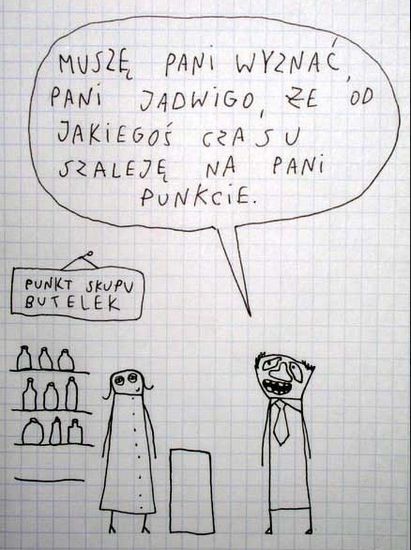 MUSZĘ PANI WYZNAĆ,
PANI JADWIGO, ŻE OD
JAKIEGOŚ CZASU
SZALEJĘ NA PANI
PUNKCIE.
PUNKT SKUPU
BUTELEK